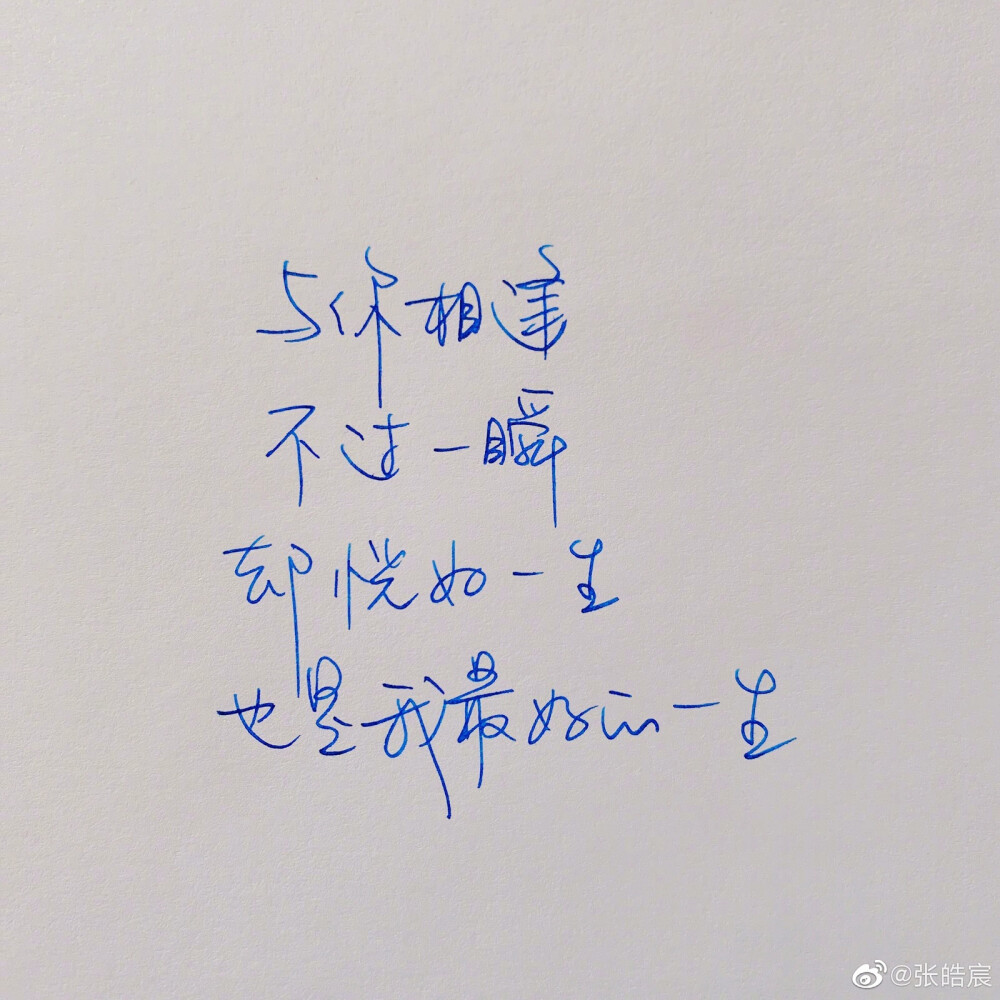 与你相逢
不过一瞬
却恍如一生
也是我最好的一生
@张皓宸